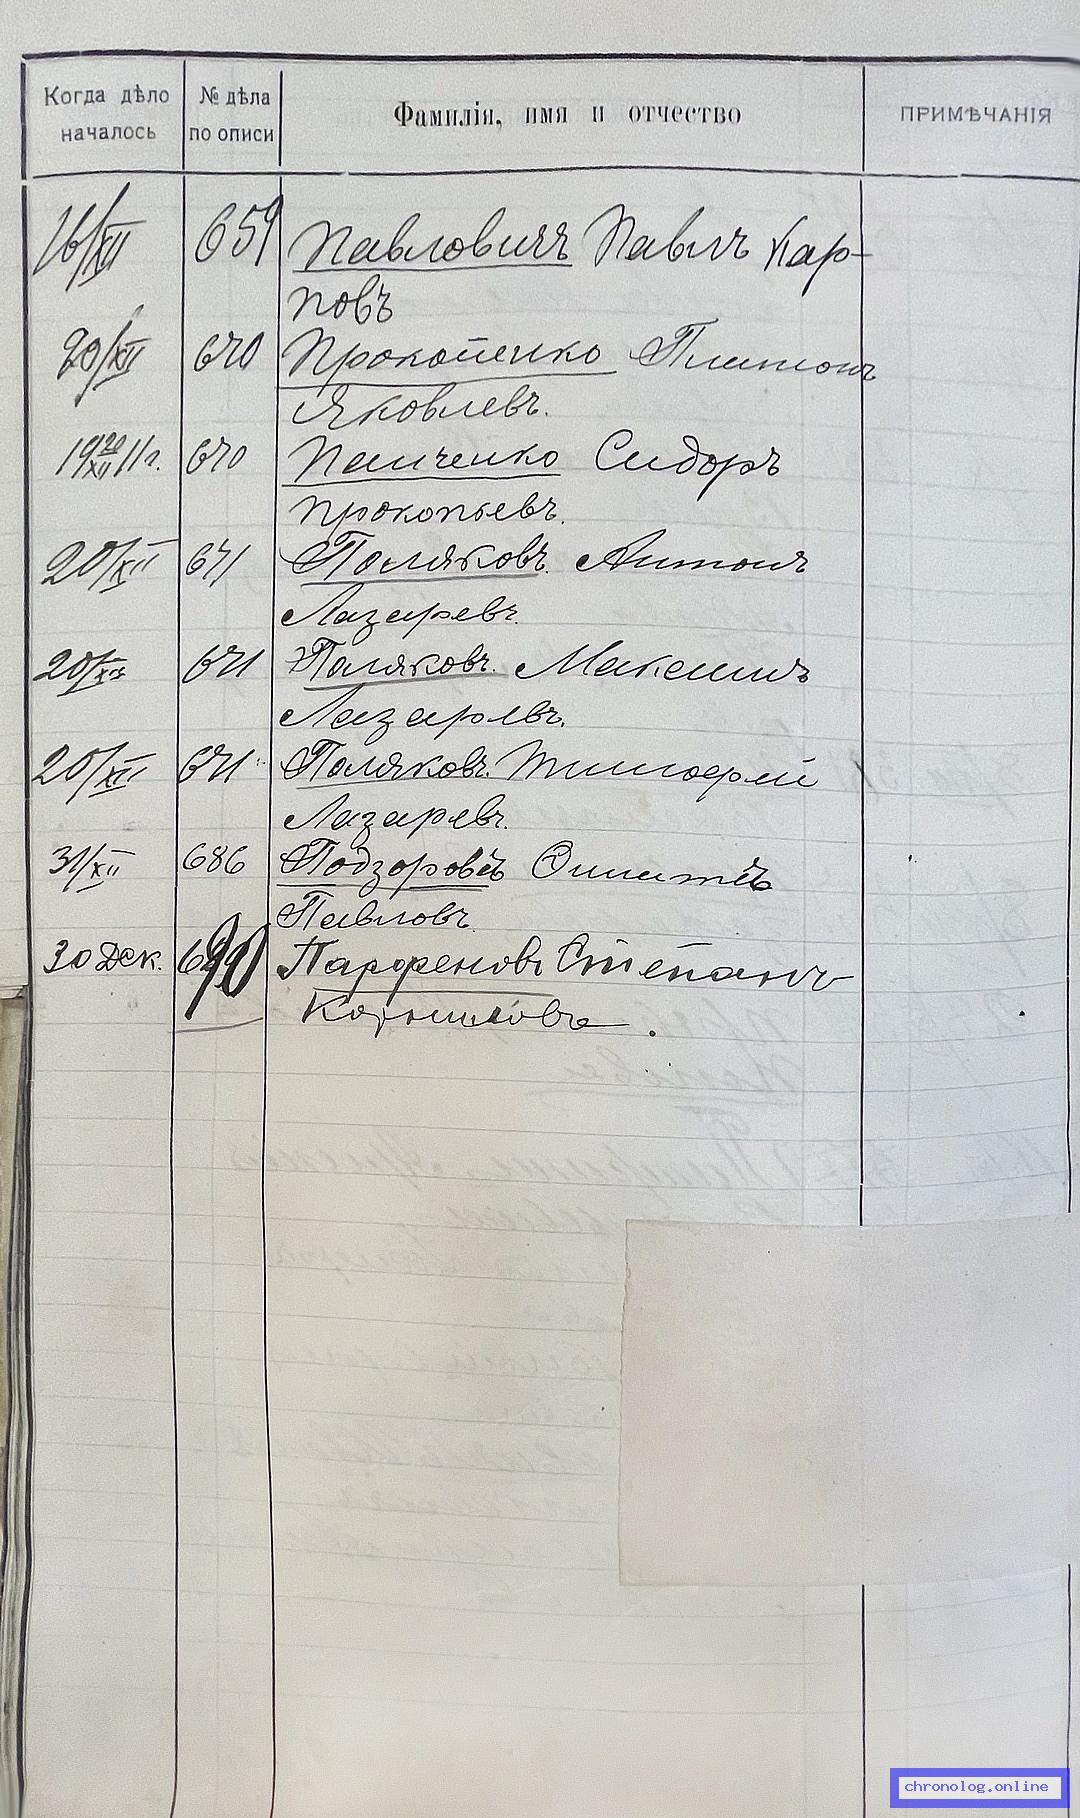 Когда дѣло началось
№ дѣла по описи
Фамилія, имя и отчество
ПРИМѢЧАНІЯ
16/XII 659 Павловичъ Павелъ Кар-
повъ
20/XII 670 Прокопенко Платонъ
Яковлевъ.
19 20/XII 11 г. 670 Панченко Сидоръ
Прокопьевъ.
20/XII 671 Поляковъ Антонъ
Лазаревъ.
20/XII 671 Поляковъ. Максимъ
Лазаревъ.
20/XII 671 Поляковъ. Тимофей
Лазаревъ.
31/XII 686 Подзоровъ
Павловъ
30 Дек. 690 Парфеновъ Степанъ
Корниловъ.
chronolog.online